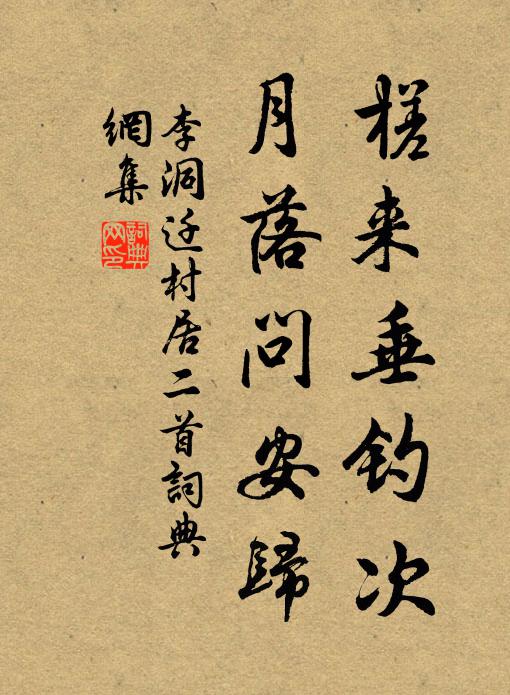 槎来垂钓次
月落問安歸
李洞迁村居二首詞典
網集
詞典
网印